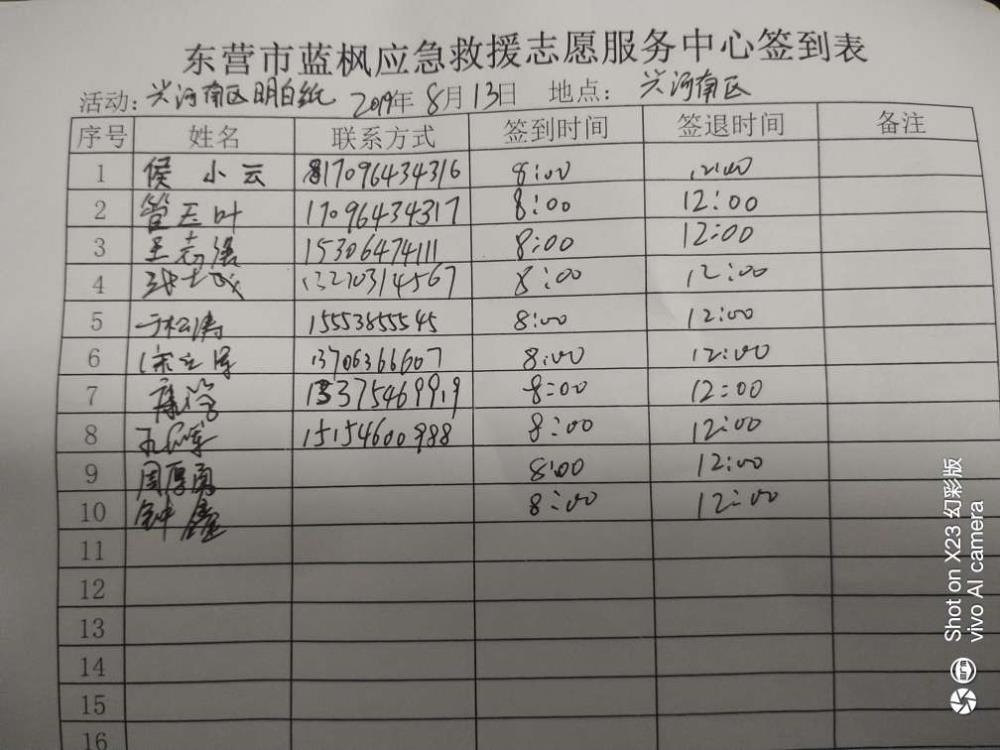 东营市蓝枫应急救援志愿服务中心签到表
活动：兴河南区明白纸 2019年 8月13日 地点：兴河南区
序号 姓名 联系方式 签到时间 签退时间 备注
1 侯小云 17096434316 8:00 12:00
2 管玉叶 17096434317 8:00 12:00
3 王志强 15306474111 8:00 12:00
4 13270314567 8:00 12:00
5 于松涛 15553855545 8:00 12:00
6 13706366607 8:00 12:00
7 13375469919 8:00 12:00
8 15154600988 8:00 12:00
9 周厚勇 8:00 12:00
10 钟鑫 8:00 12:00
11
12
13
14
15
16
Shot on X23 幻彩版
vivo AI camera